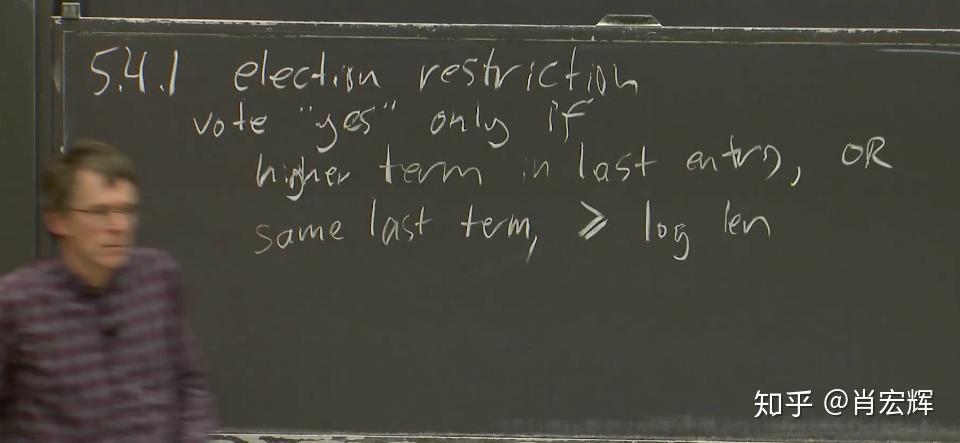 5.4.1 election restriction
vote "yes" only if
higher term in last entry, OR
same last term, ≥ log len
知乎 @肖宏辉